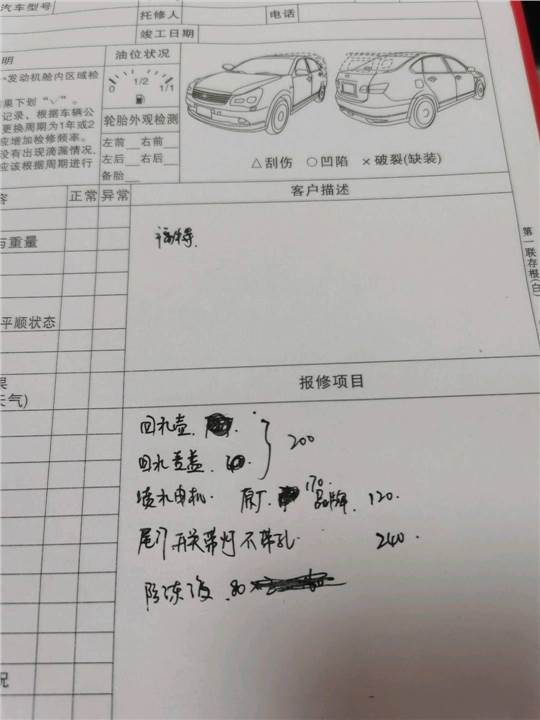 汽车型号
托修人 电话
竣工日期
明 油位状况
一发动机舱内区域检
果下划“√”。 1/2 1/1
记录，根据车辆公 轮胎外观检测
更换周期为1年或2 左前 右前
应增加检修频率。 左后 右后
没有出现滴漏情况， 备胎
应该根据周期进行
△刮伤 ○凹陷 ×破裂(缺装)
容 正常 异常 客户描述
与重量 福特
第一联存根(白)
平顺状态
果 报修项目
天气)
回水壶
回水壶盖 200
喷水电机 原厂 170 品牌 120
尾门开关带灯不带孔 240
防冻液 80
况